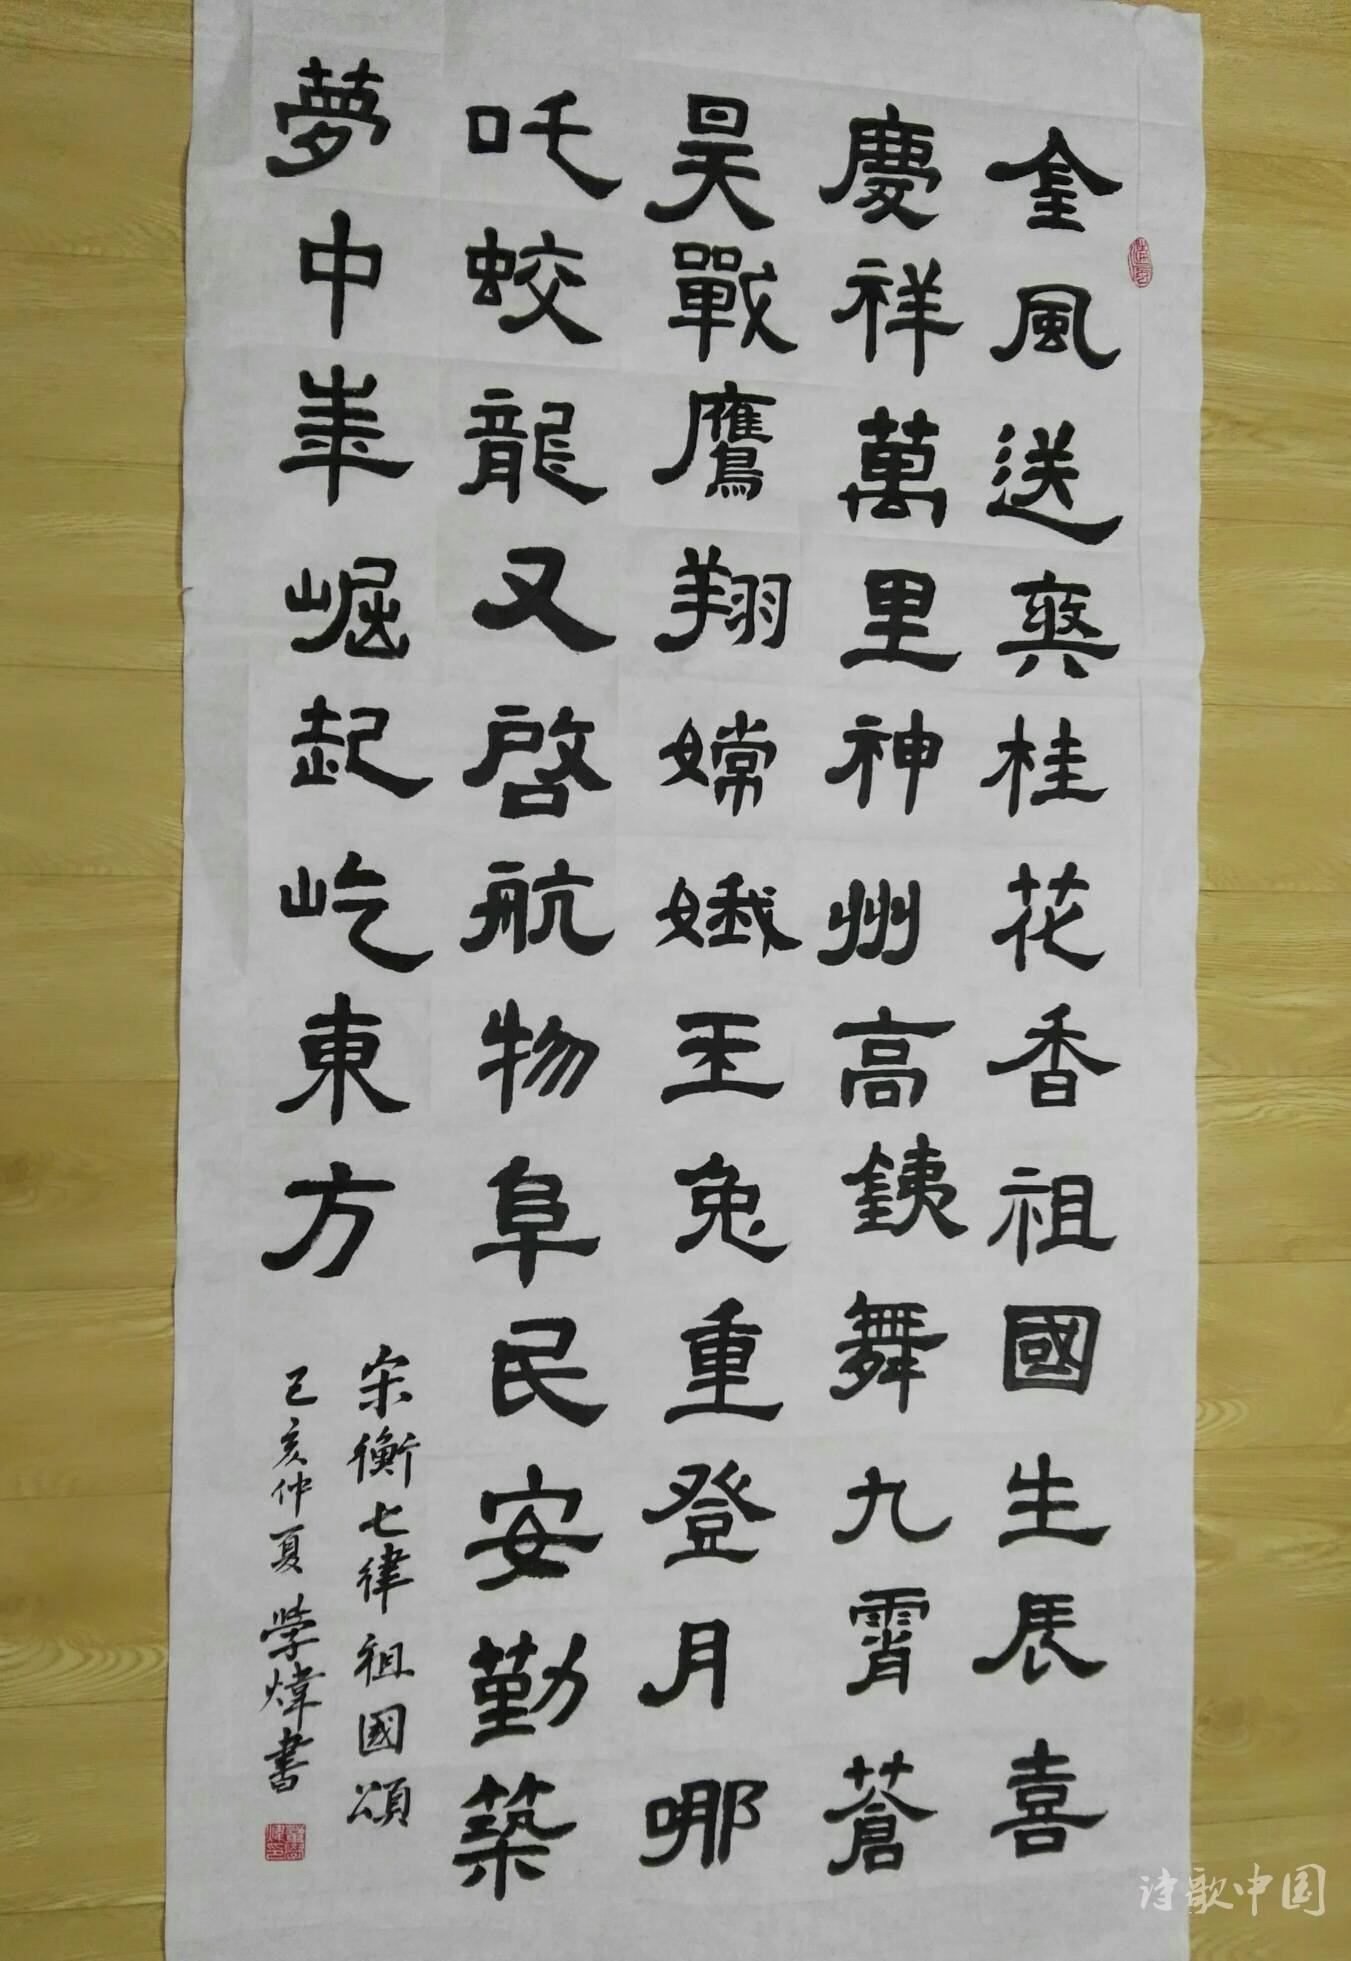 金風送爽桂花香祖國生辰喜
慶祥萬里神州高銕舞九霄蒼
昊戰鷹翔嫦娥玉兔重登月哪
吒蛟龍又啓航物阜民安勤築
夢中華崛起屹東方
宋衡七律祖國頌
己亥仲夏學煒書
诗歌中国